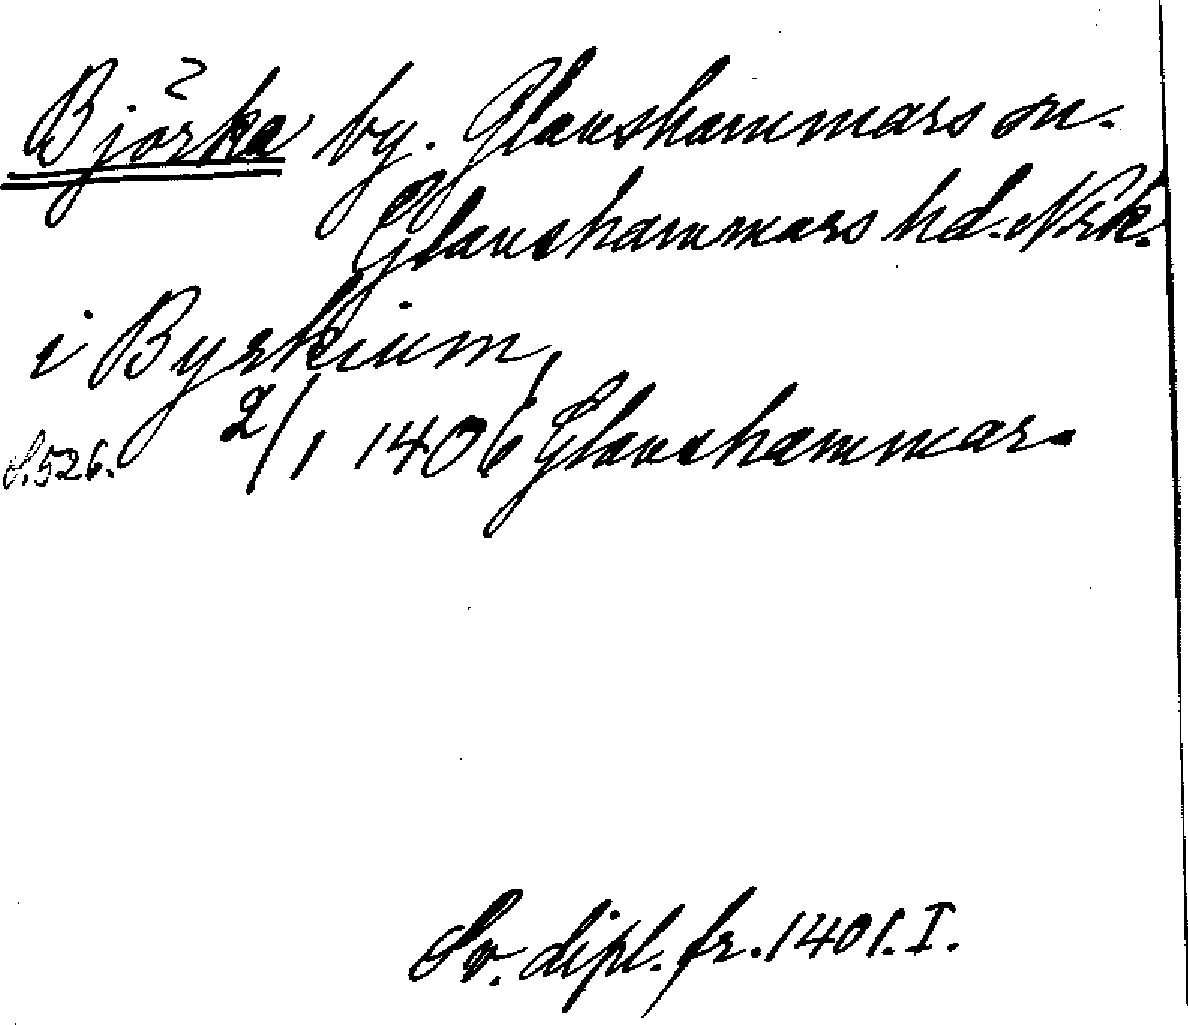 Björka by. Glanshammars sn.
Glanshammars hd. Nrk.
i Byrkium,
S. 526. 2/1 1406 Glanshammar.
Sv. dipl. fr. 1401. I.